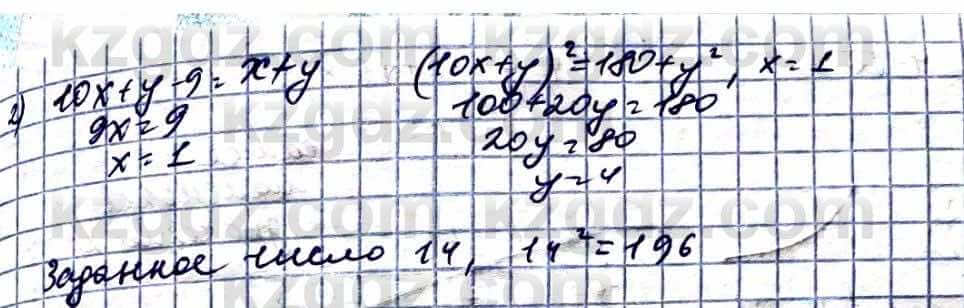 2) 10x+y-9=x+y (10x+y)²=180+y², x=1
9x=9 100+20y=180
x=1 20y=80
y=4
Заданное число 14, 14²=196
kzgdz.com